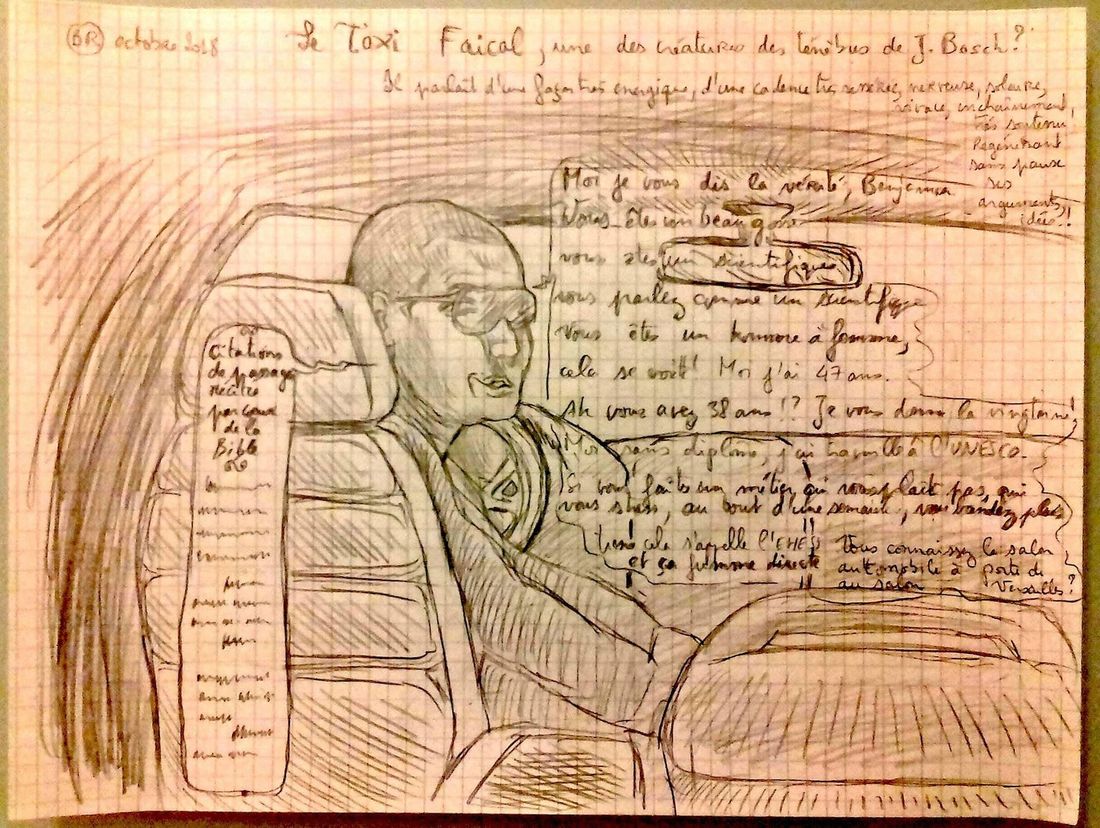 BR octobre 2018
Le Taxi Faical, une des créatures des ténèbres de J. Bosch?
Il parlait d'une façon très énergique, d'une cadence très serrée, nerveuse, solaire,
vivace, enchaînement,
très soutenu
Régénérant
sans pause
ses
arguments,
idées!!
Moi je vous dis la vérité, Benjamin
Vous êtes un beau gosse
vous êtes un scientifique
vous parlez comme un scientifique
Vous êtes un homme à femme,
cela se voit! Moi j'ai 47 ans.
Ah vous avez 38 ans!? Je vous donne la vingtaine!
Citations
de passages
récités
par cœur
de la
Bible
Moi sans diplôme, j'ai travaillé à l'UNESCO.
Si vous faites un métier qui vous plaît pas, qui
vous stress, au bout d'une semaine, vous bandez plus
tiens cela s'appelle
et ça fume directe
Vous connaissez le salon
automobile à porte de
Versailles?
au salon